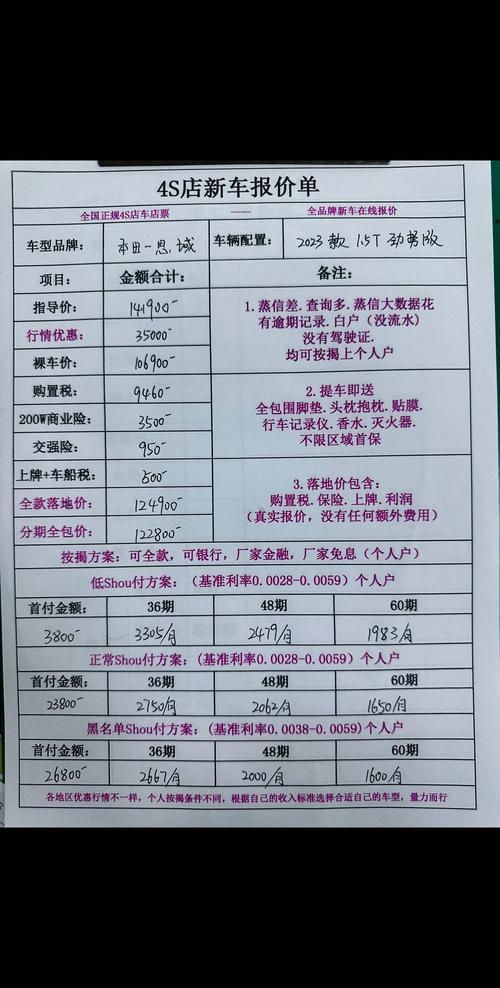 4S店新车报价单
全国正规4S店车店票 —— 全品牌新车在线报价
车型品牌： 本田-思域 车辆配置： 2023款 1.5T 劲势版
项目： 金额合计： 备注：
指导价： 141900-
行情优惠： 35000-
裸车价： 106900-
购置税： 9460-
200W商业险： 3500-
交强险： 950-
上牌+车船税： 500-
全款落地价： 124900-
分期全包价： 122800-
1.蒸信差.查询多.蒸信大数据花
有逾期记录.白户（没流水）
没有驾驶证.
均可按揭上个人户
2.提车即送
全包围脚垫.头枕抱枕.贴膜.
行车记录仪.香水.灭火器.
不限区域首保
3.落地价包含：
购置税.保险.上牌.利润
（真实报价，没有任何额外费用）
按揭方案：可全款，可银行，厂家金融，厂家免息（个人户）
低Shou付方案：（基准利率0.0028-0.0059）个人户
首付金额： 36期 48期 60期
3800- 3305/月 2479/月 1983/月
正常Shou付方案：(基准利率0.0028-0.0059）个人户
首付金额： 36期 48期 60期
23800- 2750/月 2062/月 1650/月
黑名单Shou付方案：(基准利率0.0038-0.0059)个人户
首付金额： 36期 48期 60期
26800- 2667/月 2000/月 1600/月
各地区优惠行情不一样，个人按揭条件不同，根据自己的收入标准选择合适自己的车型，量力而行